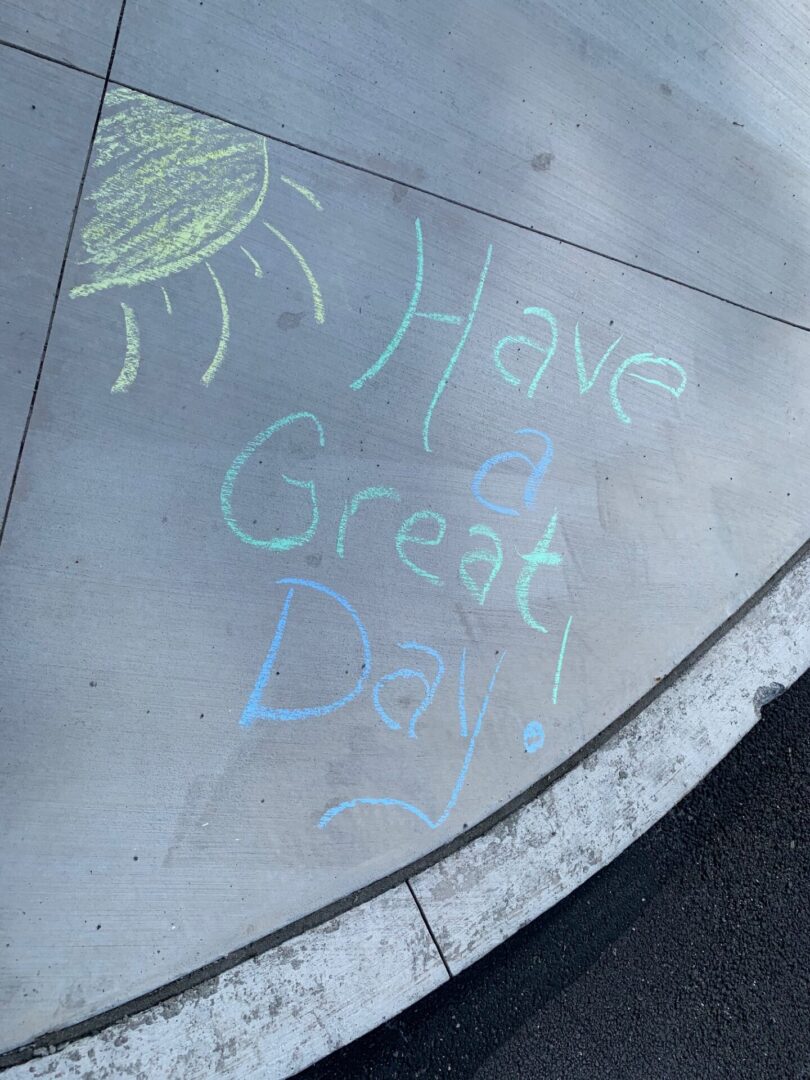 Have
a
Great
Day!